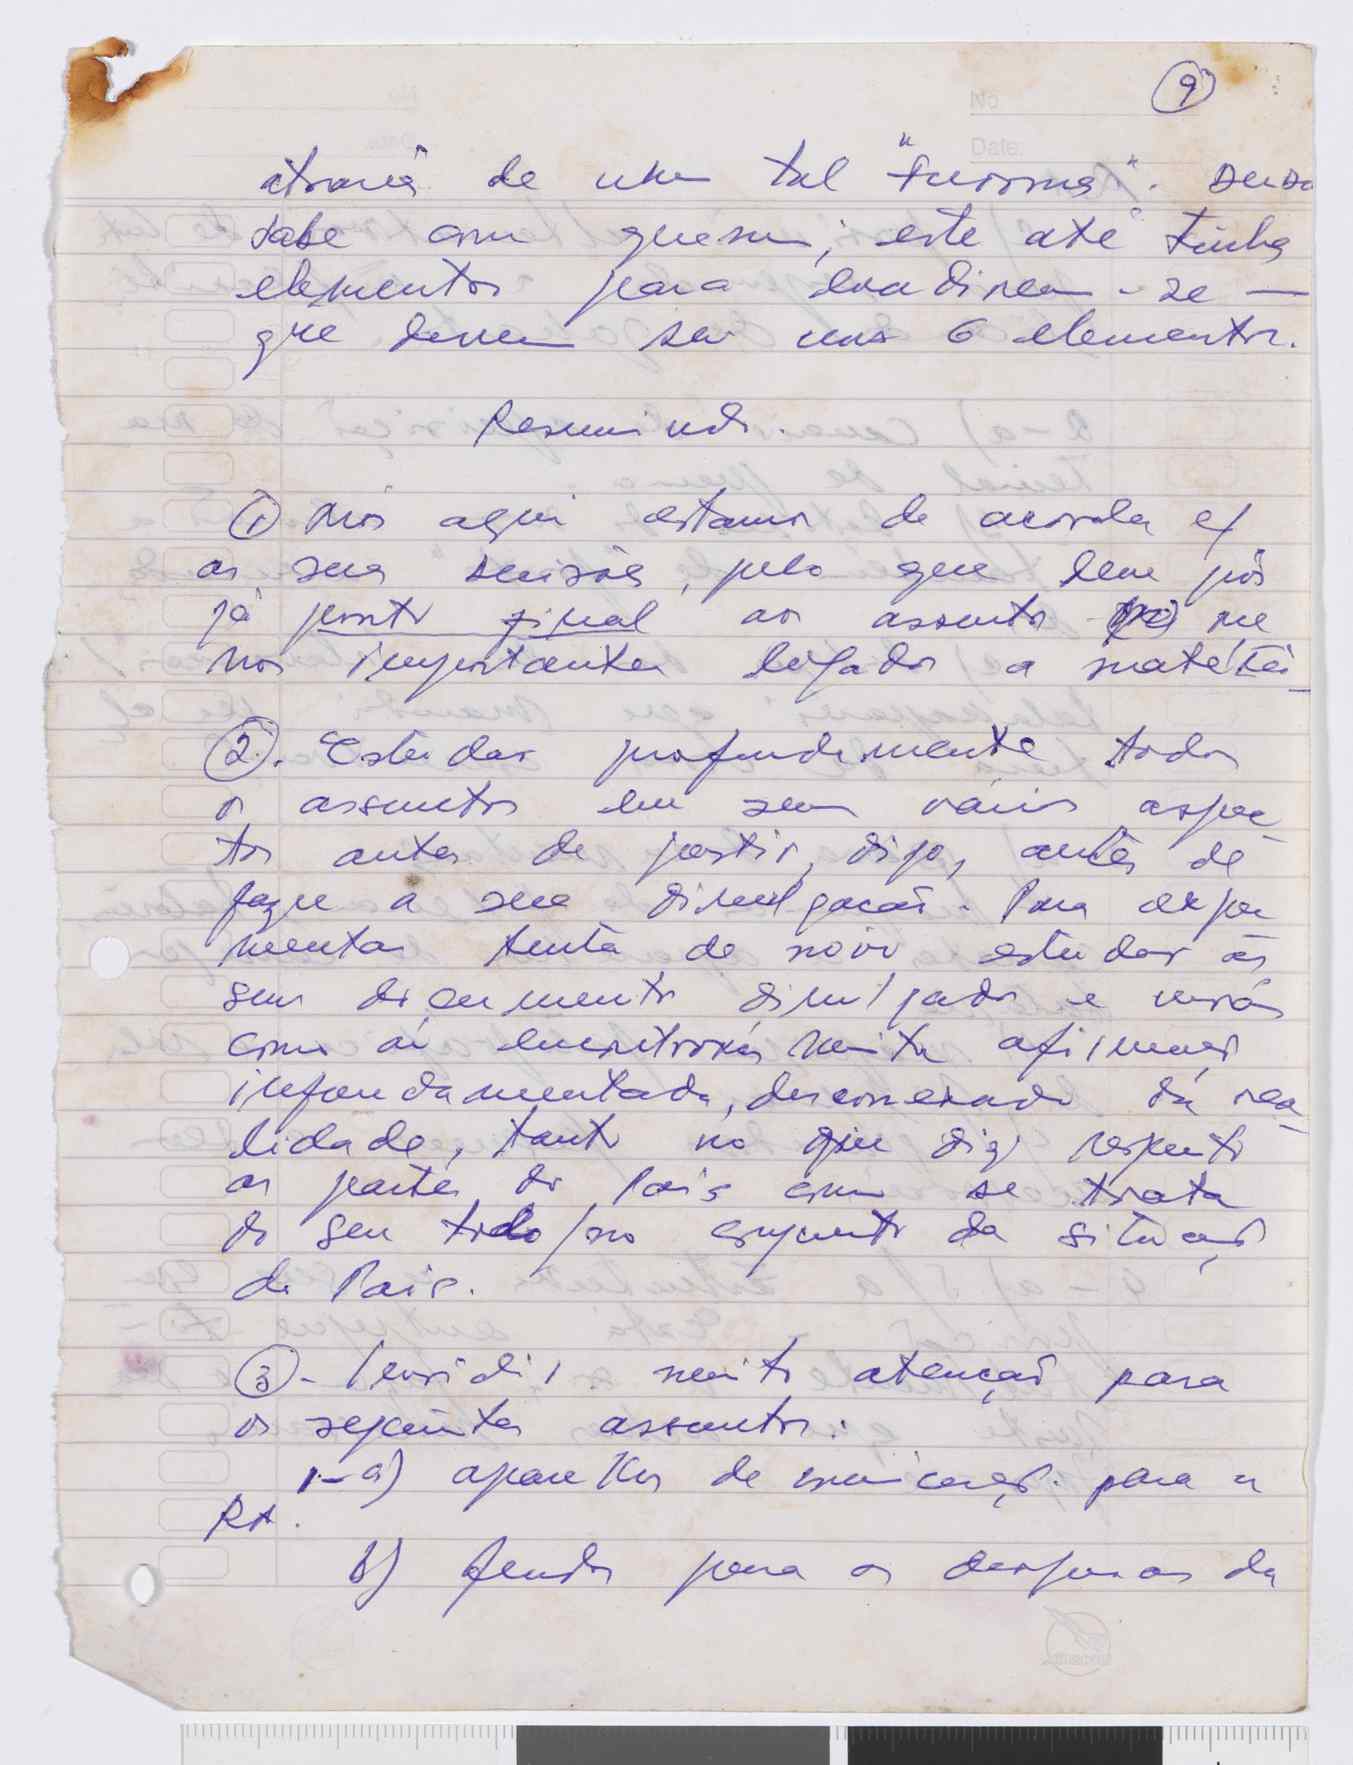 9
No
Date:
através de um tal "Furrima". Deu
sabe como quem, este até tinha
elementos para evadirem-se —
que devem ser uns 6 elementos.
Resumindo.
① Nós aqui estamos de acordo c/
as sua decisões, pelo que bem pôs
já ponto final aos assuntos me
nos importantes ligados a matéria
②. Estudar profundamente todos
os assuntos em seus vários aspec
tos antes de partir, digo, antes de
fazer a sua divulgação. Para expe
mentar tenta de novo estudar os
seus documentos divulgados e verás
como aí encontrarás muita afirmaç
infundamentada, desconexado da rea
lidade, tanto no que diz respeito
as partes do País como se trata
do seu todo/no conjunto da situaçaõ
do País.
③ - muito atençaõ para
os seguintes assuntos:
1-a) aparelhos de comunicaçaõ para a
RA.
b) fundos para as despesas da